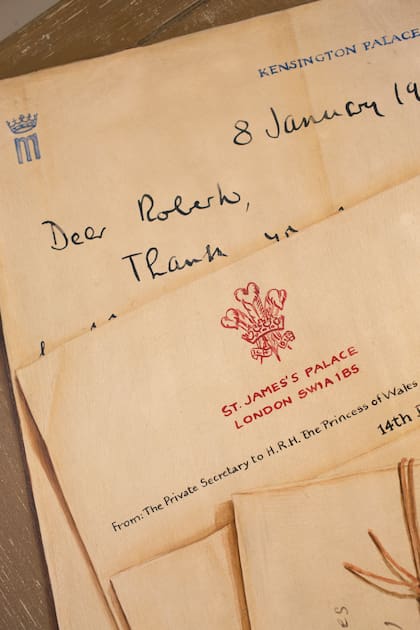 KENSINGTON PALACE
m
8 January 19
Dear Roberto,
Thank
ST. JAMES'S PALACE
LONDON SW1A 1BS
From: The Private Secretary to H.R.H. The Princess of Wales
14th
es